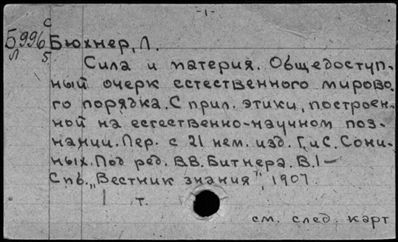 -1-
С
Б996 Бюхнер, Л.
Л 5
Сила и материя. Общедоступ-
ный очерк естественного мирово-
го порядка. С прил. этики, построен-
ной на естественно-научном поз-
нании. Пер. с 21 нем. изд. Г. и С. Сони-
ных. Под ред. В.В. Битнера. В.1-
Спб., "Вестник знания", 1907.
1 т.
см. след. карт